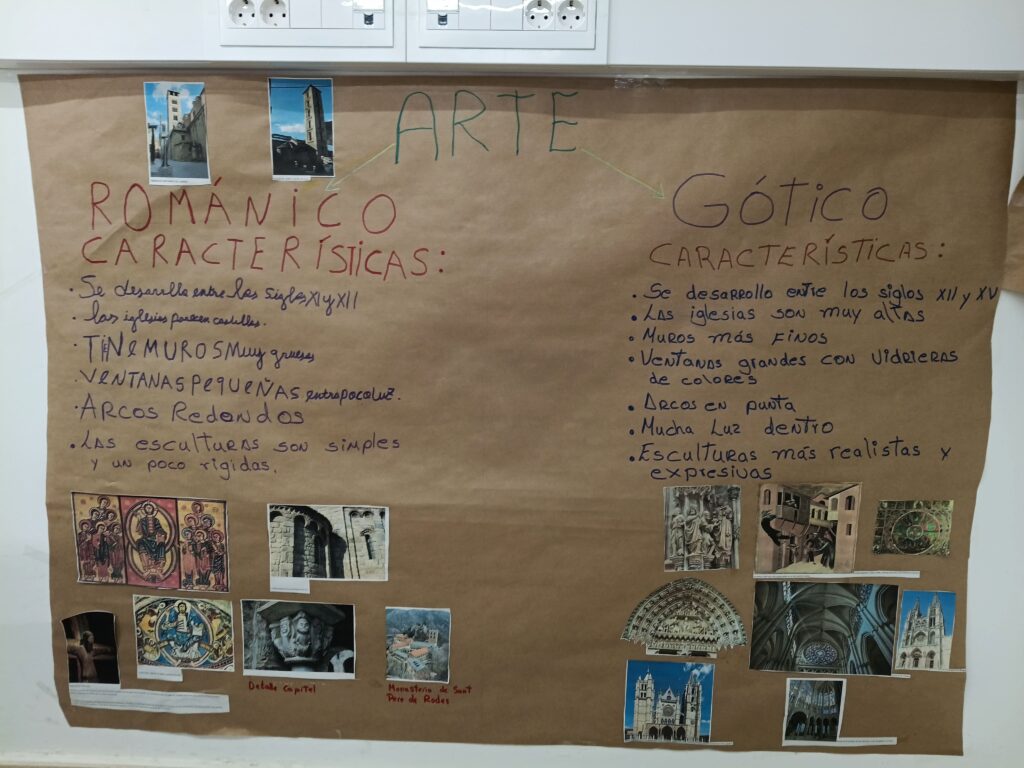 ARTE
ROMÁNICO
CARACTERÍSTICAS:
• Se desarrolla entre los siglos XI y XII
• las iglesias parecen castillos.
• TiNe MUROS Muy gruesos
• VENTANAS PeQUEÑAS. entra poca luz.
• ARCOS Redondos
• LAS esculturas son simples
y un poco rigidas.
Detalle Capitel
Monasterio de Sant
Pere de Rodes
GÓTICO
CARACTERÍSTICAS:
• Se desarrollo entre los siglos XII y XV
• LAS iglesias son muy altas
• Muros más finos
• Ventanas grandes con vidrieras
de colores
• Arcos en punta
• Mucha Luz dentro
• Esculturas más realistas y
expresivas